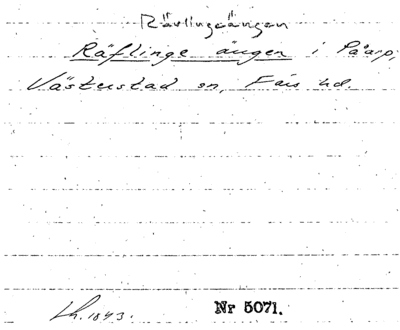 Rävlingeängen
Räflinge ängen i Påarp,
Västerstad sn, Färs hd.
Lh. 1843.
Nr 5071.